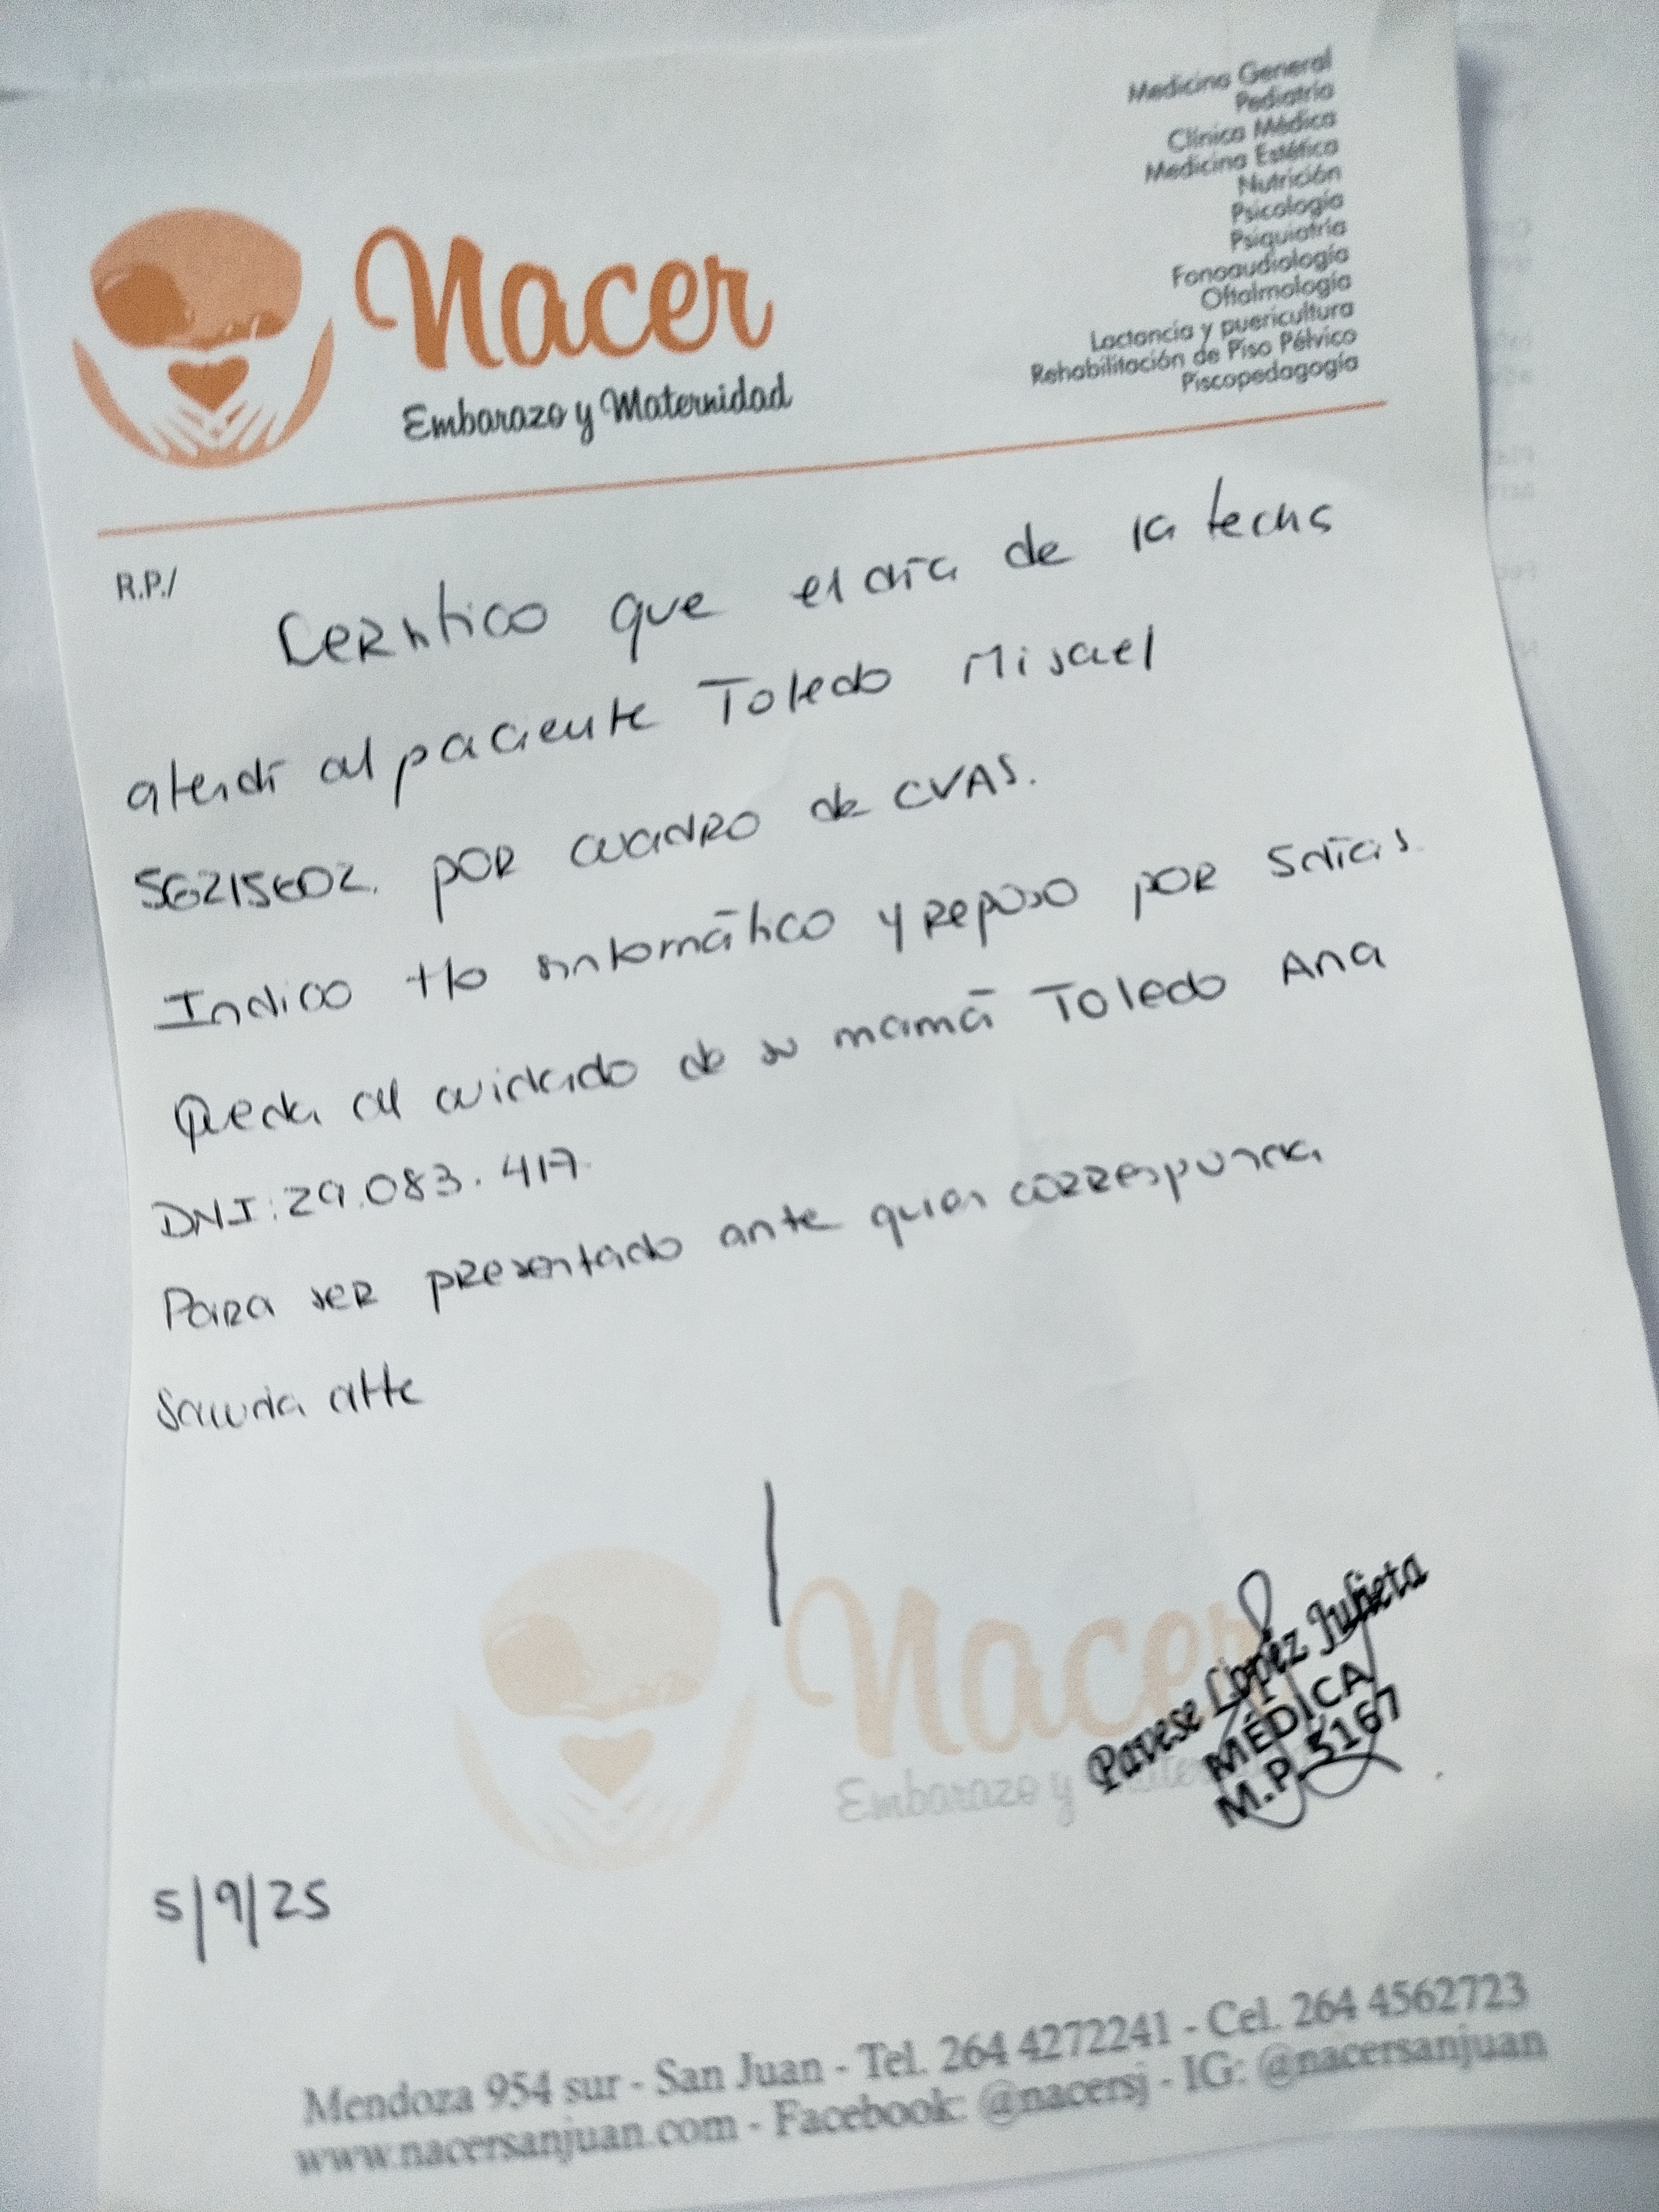 Medicina General
Pediatría
Clínica Médica
Medicina Estética
Nutrición
Psicología
Psiquiatría
Fonoaudiología
Oftalmología
Lactancia y puericultura
Rehabilitación de Piso Pélvico
Piscopedagogía
Nacer
Embarazo y Maternidad
R.P./
Certifico que el día de la fecha
atendí al paciente Toledo Misael
por cuadro de CVAS.
Indico tto sintomático y reposo por 5 días.
Queda al cuidado de su mamá Toledo Ana
DNI: 29.083.417.
Para ser presentado ante quien corresponda
Saluda atte
Nacer
Embarazo y
Pavese Lopez Julieta
MÉDICA
M.P. 5167
5/9/25
Mendoza 954 sur - San Juan - Tel. 264 4272241 - Cel. 264 4562723
www.nacersanjuan.com - Facebook: @nacersj - IG: @nacersanjuan